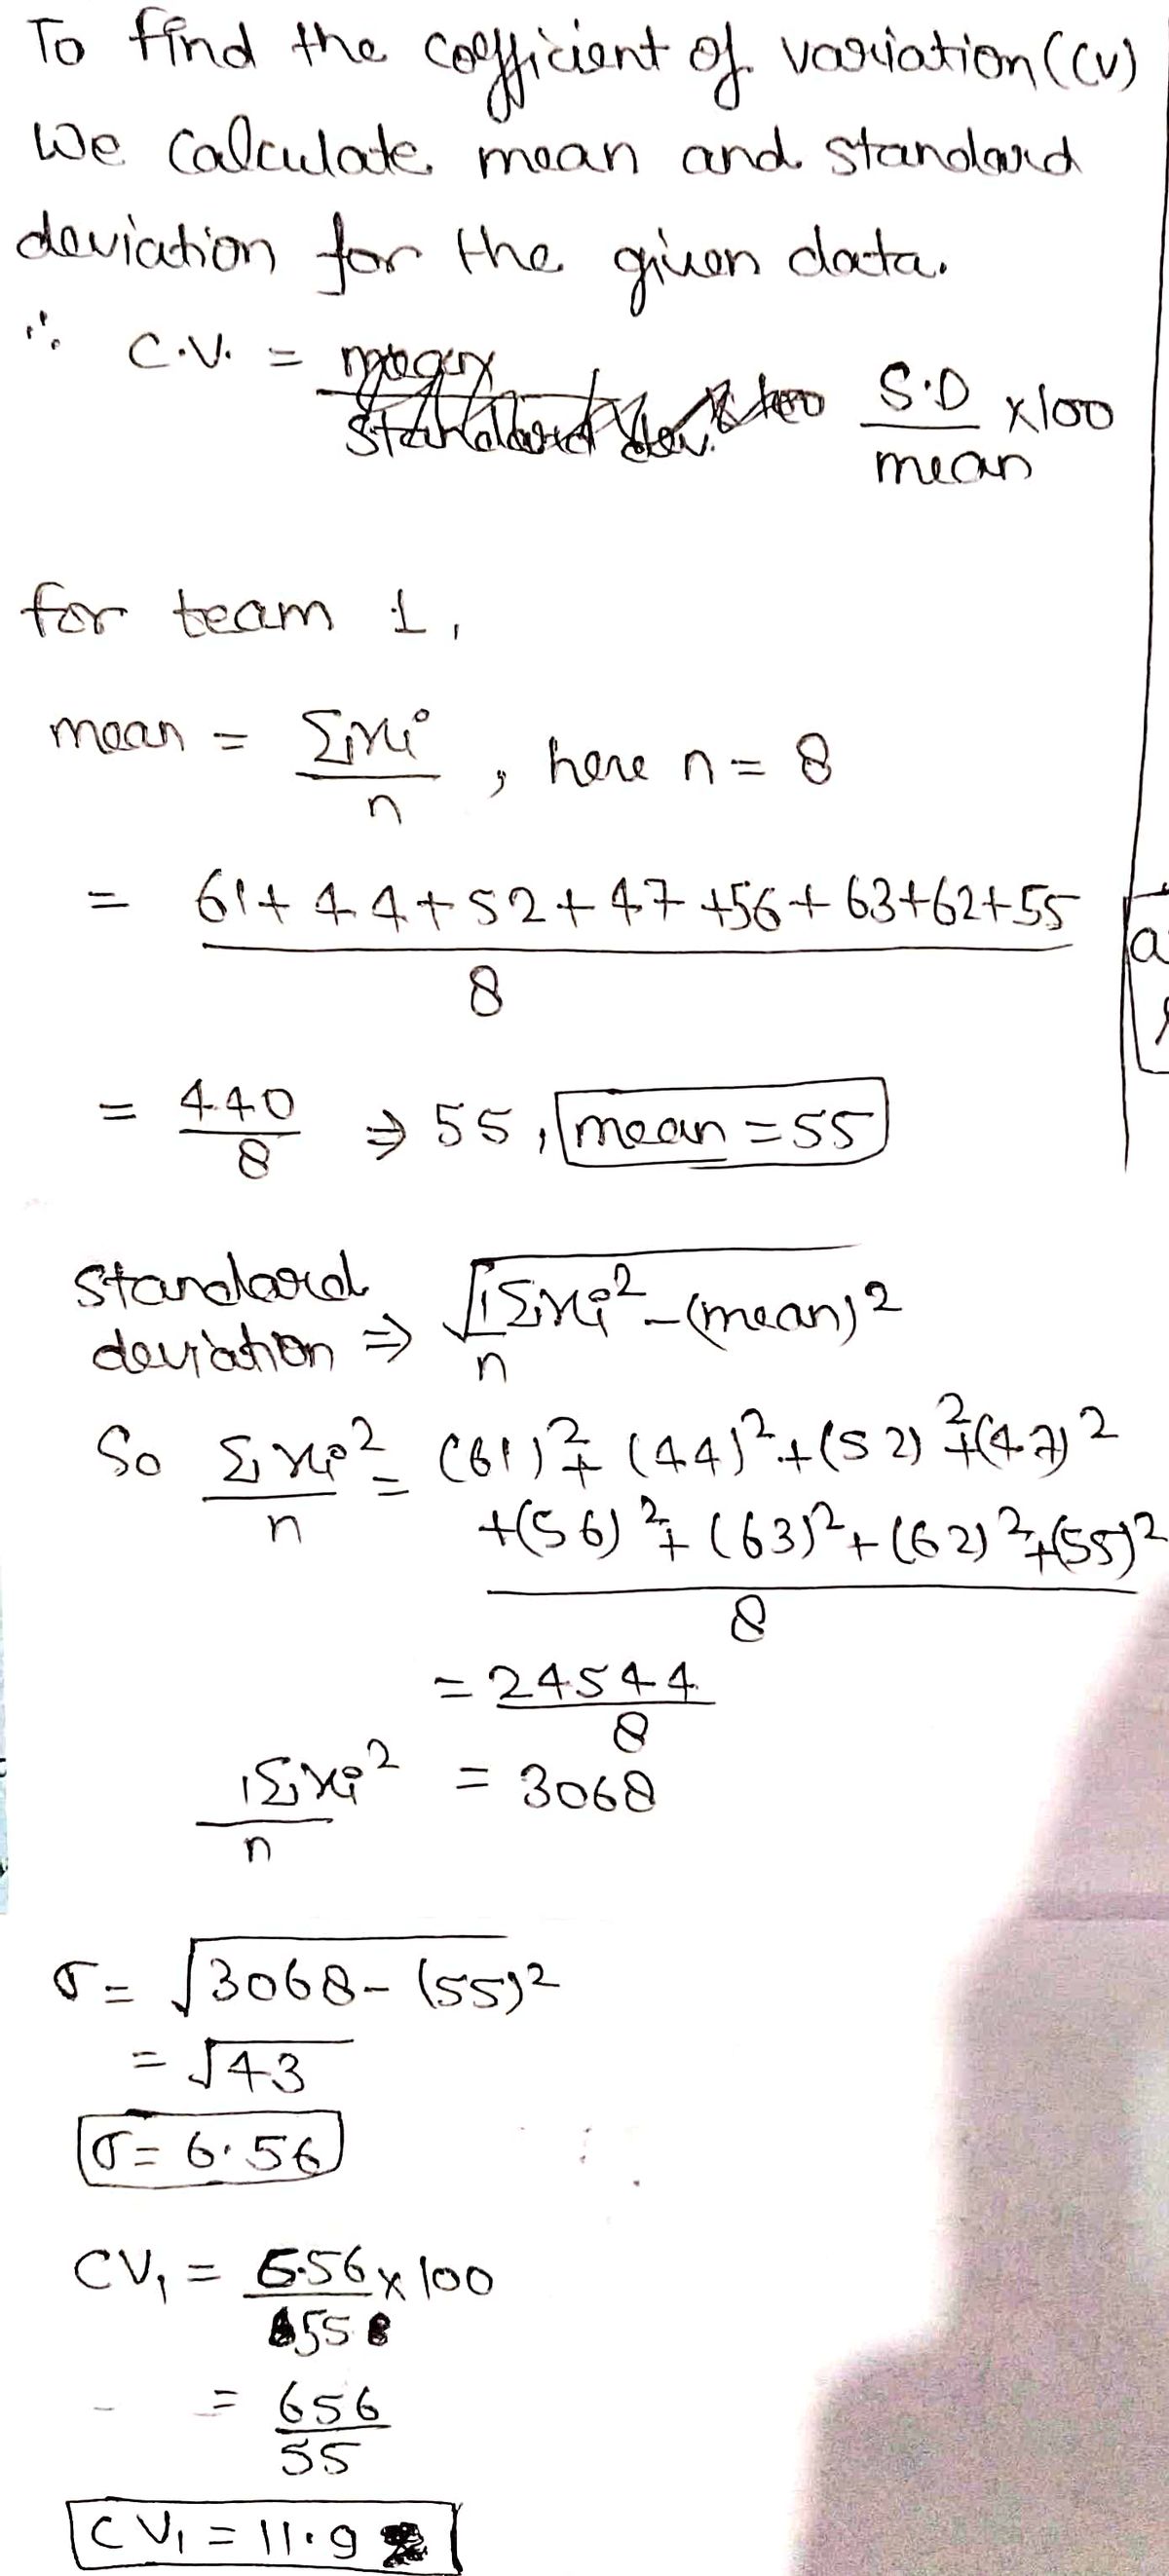 To find the coefficient of variation (CV)
We calculate mean and standard
deviation for the given data.
∴ C.V. = S.D / mean x100
for team 1,
mean = Σxi / n , here n = 8
= 61+44+52+47+56+63+62+55 / 8
= 440 / 8 ⇒ 55, mean = 55
standard deviation ⇒ √ 1/n Σxi² - (mean)²
So Σxi² / n = (61)² + (44)² + (52)² + (47)²
+(56)² + (63)² + (62)² + (55)² / 8
= 24544 / 8
1/n Σxi² = 3068
σ = √3068 - (55)²
= √43
σ = 6.56
CV₁ = 6.56 x 100 / 55
= 656 / 55
CV₁ = 11.9
a